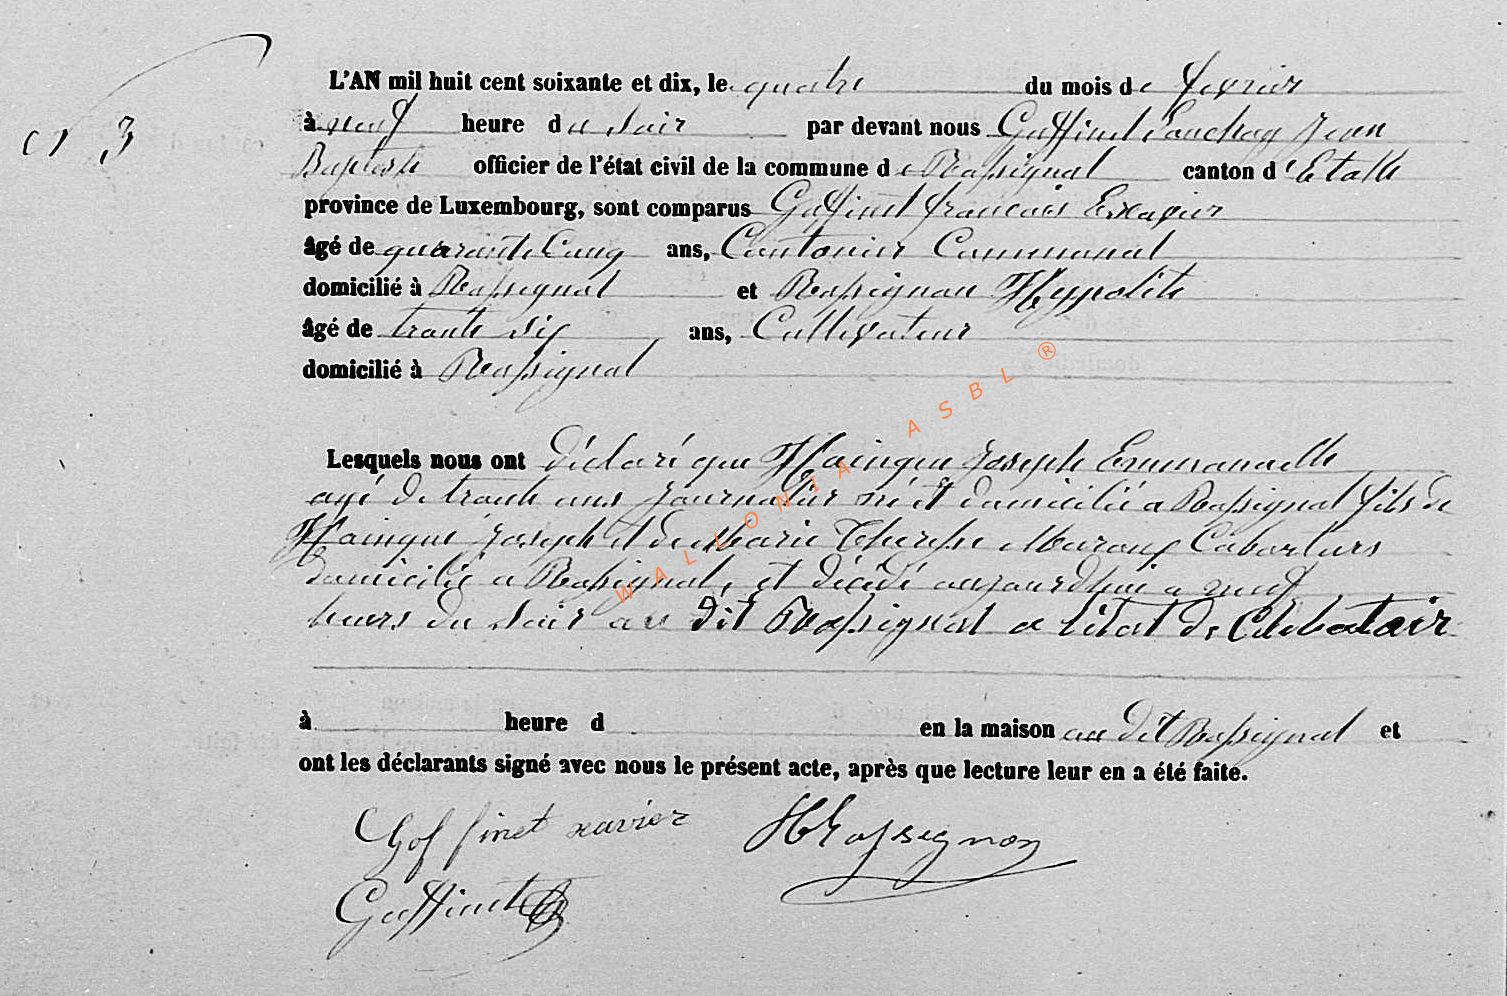 L'AN mil huit cent soixante et dix, le quatre du mois de fevrier
N 3
à neuf heure du Soir par devant nous Goffinet Jean
Baptiste officier de l'état civil de la commune de Rossignol canton d'Etalle
province de Luxembourg, sont comparus Goffinet francois Exavier
âgé de quarante Cinq ans, Cantonier Communal
domicilié à Rossignol et Rossignon Hyppolite
âgé de trante Six ans, Cultivateur
domicilié à Rossignol
Lesquels nous ont déclaré que Hainque Joseph Emmanuelle
agé de trante ans Journalier né et domicilié a Rossignol fils de
Hainque Joseph et de Marie Therese Cabartiers
domicilié a Rossignol, et décédé aujourdhui a neuf
heurs du Soir au dit Rossignol a l'état de Celebatair
à heure d en la maison au dit Rossignol et
ont les déclarants signé avec nous le présent acte, après que lecture leur en a été faite.
Goffinet xavier HRossignon
Goffinet
WALLONIA ASBL ®